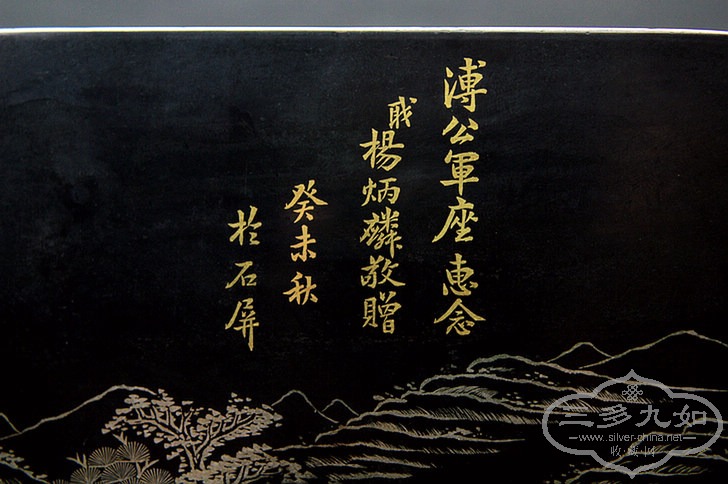 溥公軍座惠念
戝楊炳麟敬贈
癸未秋
於石屏
三多九如
www.silver-china.net
收藏网